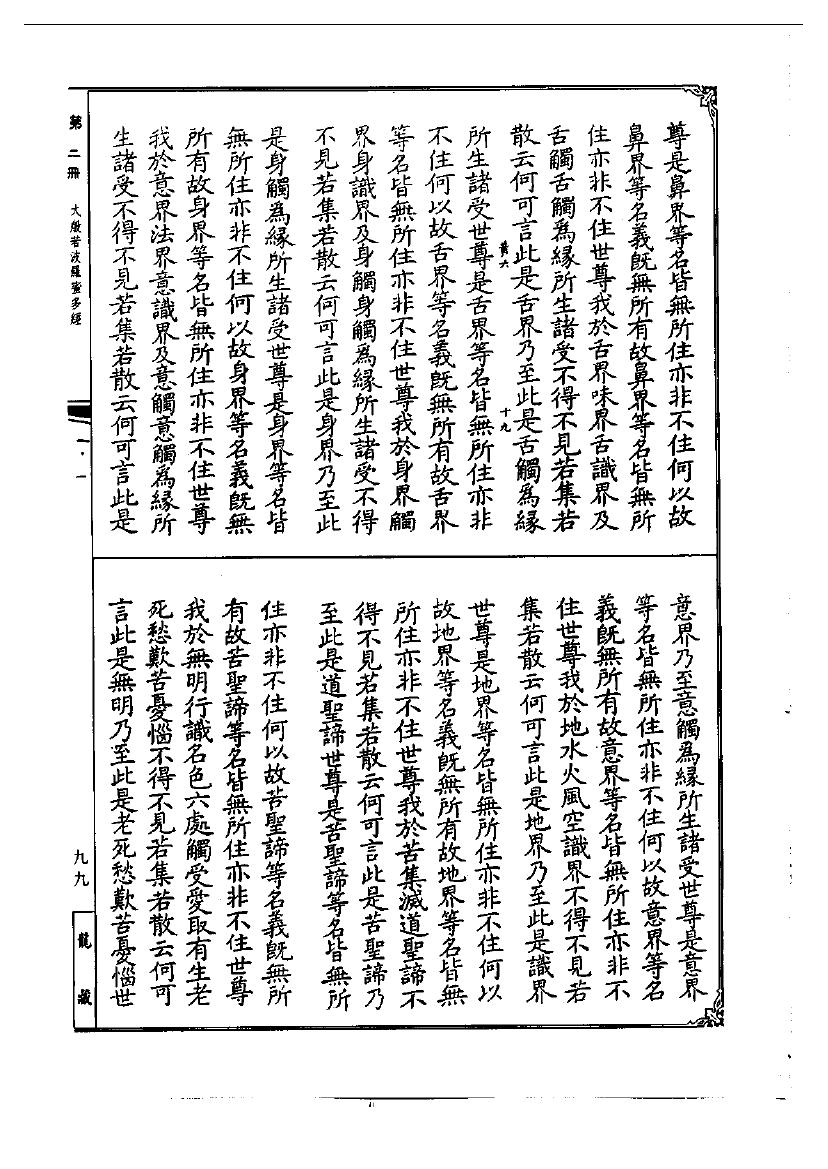 尊是鼻界等名皆無所住亦非不住何以故
鼻界等名義既無所有故鼻界等名皆無所
住亦非不住世尊我於舌界味界舌識界及
舌觸舌觸為緣所生諸受不得不見若集若
散云何可言此是舌界乃至此是舌觸為緣
黃六
十九
所生諸受世尊是舌界等名皆無所住亦非
不住何以故舌界等名義既無所有故舌界
等名皆無所住亦非不住世尊我於身界觸
界身識界及身觸身觸為緣所生諸受不得
不見若集若散云何可言此是身界乃至此
是身觸為緣所生諸受世尊是身界等名皆
無所住亦非不住何以故身界等名義既無
所有故身界等名皆無所住亦非不住世尊
我於意界法界意識界及意觸意觸為緣所
生諸受不得不見若集若散云何可言此是
意界乃至意觸為緣所生諸受世尊是意界
等名皆無所住亦非不住何以故意界等名
義既無所有故意界等名皆無所住亦非不
住世尊我於地水火風空識界不得不見若
集若散云何可言此是地界乃至此是識界
世尊是地界等名皆無所住亦非不住何以
故地界等名義既無所有故地界等名皆無
所住亦非不住世尊我於苦集滅道聖諦不
得不見若集若散云何可言此是苦聖諦乃
至此是道聖諦世尊是苦聖諦等名皆無所
住亦非不住何以故苦聖諦等名義既無所
有故苦聖諦等名皆無所住亦非不住世尊
我於無明行識名色六處觸受愛取有生老
死愁歎苦憂惱不得不見若集若散云何可
言此是無明乃至此是老死愁歎苦憂惱世
第二冊 大般若波羅蜜多經
一·一
九九
龍藏